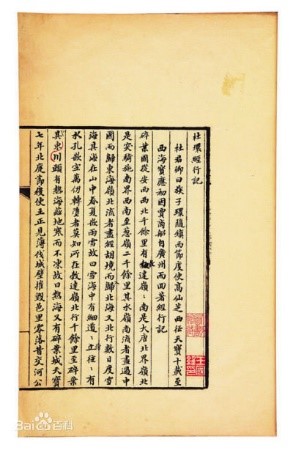 杜環經行記
杜君卿曰族子環隨鎮西節度使高仙芝西征天寶十載至
西海寶應初因賈商舶自廣州而回著經行記
碎葉國從安西西北千餘里有勃達嶺〻南是大唐北界嶺北
是突騎施南界西南至葱嶺二千餘里其水嶺南流者盡過中
國而歸東海嶺北流者盡經胡境而歸北海又北行數日度雪
海其海在山中春夏常雨雪故曰雪海中有細道〻旁往〻有
水孔嵌空萬仞轉墮者莫知所在勃達嶺北行千餘里至碎葉
川其川東頭有熱海茲地寒而不凍故曰熱海又有碎葉城天寶
七年北庭節度使王正見薄伐城壁摧毀邑里零落昔交河公
Bai百科